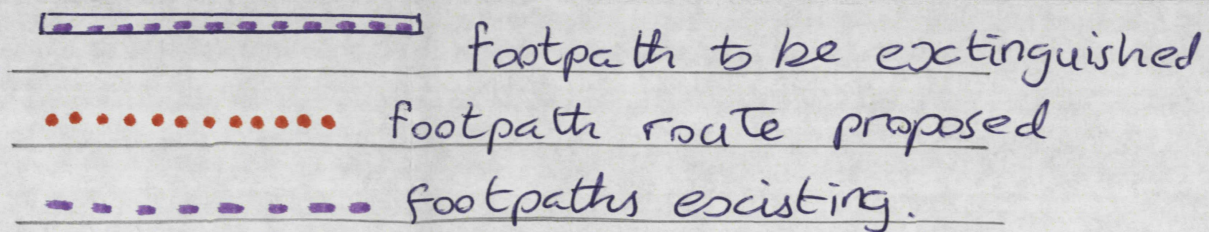 footpath to be extinguished
footpath route proposed
footpaths existing.